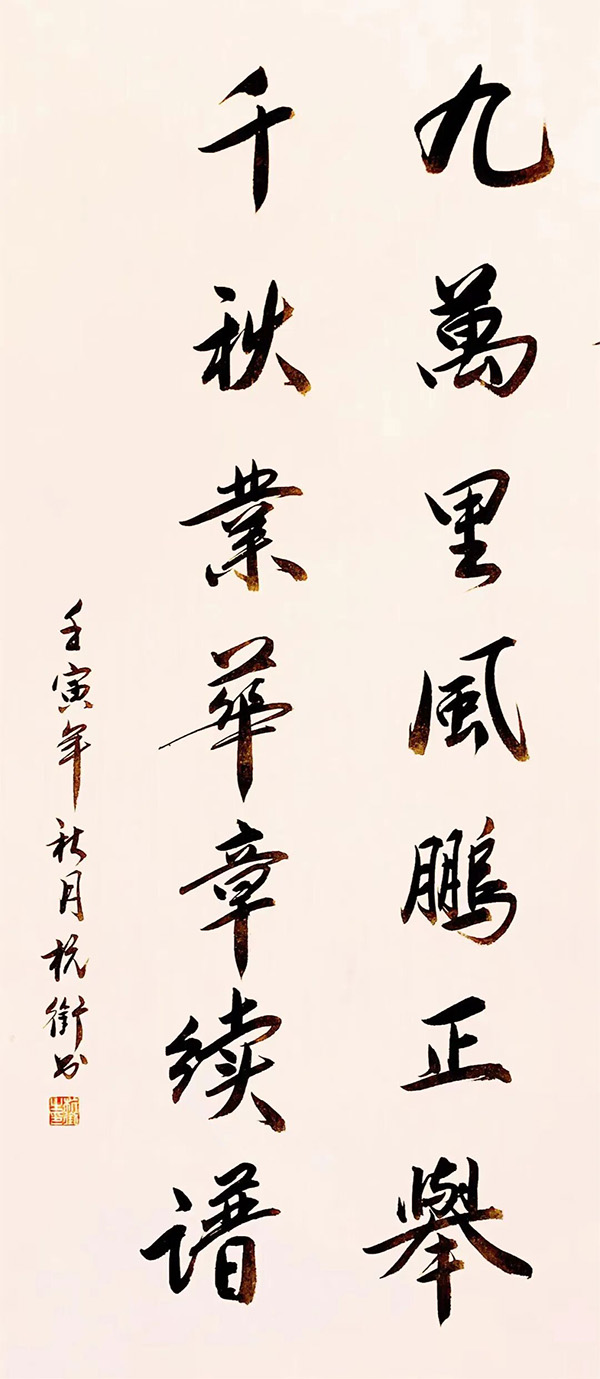 九萬里風鵬正舉
千秋業華章续谱
壬寅年秋月杭衛书